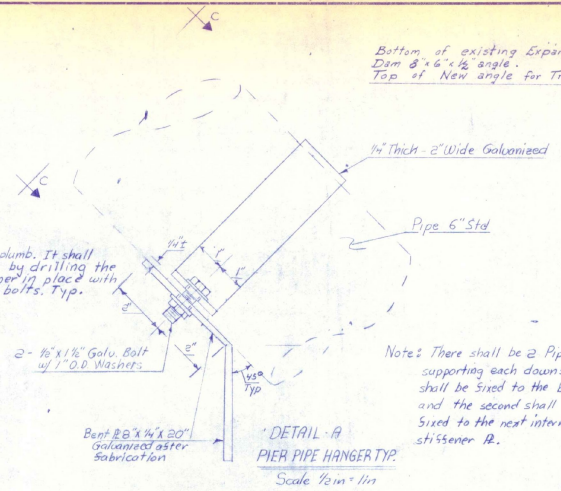 C
Bottom of existing Expan
Dam 8"x6"x½" angle.
Top of New angle for Tr
¼" Thick - 2" Wide Galvanized
C
Pipe 6" Std
plumb. It shall
by drilling the
er in place with
bolts. Typ.
¼"t
1"
1"
2"
2"
2- ½"x1½" Galv. Bolt
w/ 1" O.D. Washers
45°
Typ
Note: There shall be 2 Pip
supporting each downs
shall be fixed to the b
and the second shall
fixed to the next interm
stiffener PL.
Bent PL 8"x¼"x20"
Galvanized after
fabrication
DETAIL-A
PIER PIPE HANGER TYP.
Scale ½in=1in